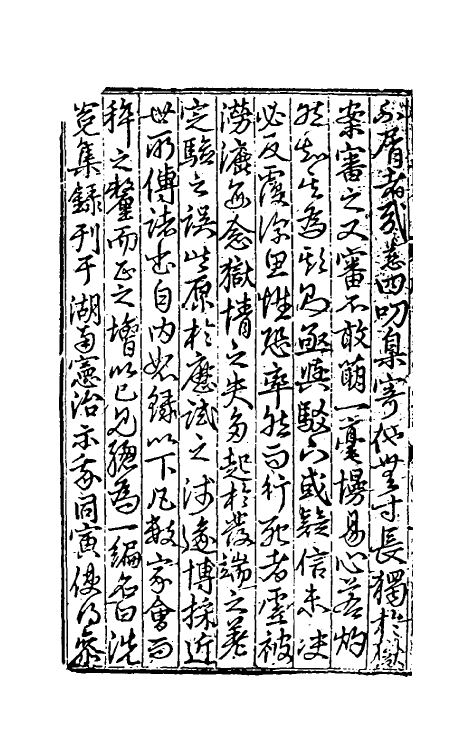 不屑者哉慈四叨臬寄他無寸長獨於獄
案審之又審不敢萌一毫慢易心若灼
然知其為欺則亟與駁下或疑信未決
必反覆深思惟恐率然而行死者虛被
澇漉每念獄情之失多起於發端之差
定驗之誤皆原於歷試之淺遂博採近
世所傳諸書自內恕錄以下凡數家會而
稡之釐而正之增以己見總為一編名曰洗
冤集錄刊于湖南憲治示我同寅使得參